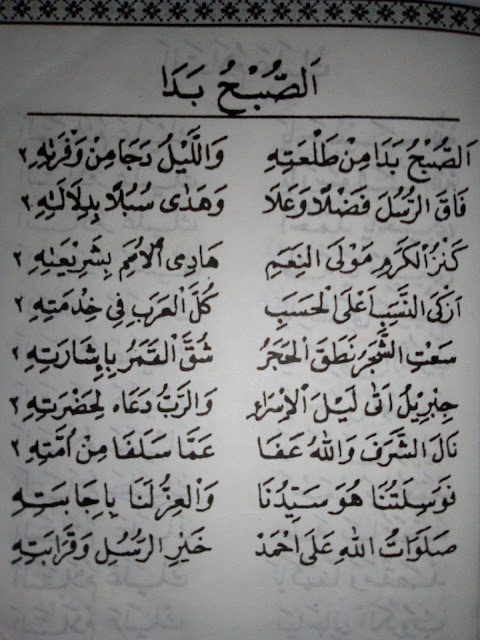 اَلصُّبْحُ بَدَا
اَلصُّبْحُ بَدَا مِنْ طَلْعَتِهِ وَاللَّيْلُ دَجَا مِنْ وَفْرَتِهِ ٢
فَاقَ الرُّسُلَ فَضْلًا وَعَلَا وَهَدٰى سُبُلًا بِدِلَالَتِهِ ٢
كَنْزُ الْكَرَمِ مَوْلَى النِّعَمِ هَادِى الْأُمَمِ بِشَرِيْعَتِهِ ٢
اَزْكَى النَّسَبِ اَعْلَى الْحَسَبِ كُلُّ الْعَرَبِ فِي خِدْمَتِهِ ٢
سَعَتِ الشَّجَرُ نَطَقَ الْحَجَرُ شُقَّ الْقَمَرُ بِإِشَارَتِهِ ٢
جِبْرِيْلُ اَتٰى لَيْلَ الْإِسْرَاءِ وَالرَّبُّ دَعَاهُ لِحَضْرَتِهِ ٢
نَالَ الشَّرَفَ وَاللهُ عَفَا عَمَّا سَلَفَا مِنْ اُمَّتِهِ ٢
فَوَسِلَتُنَا هُوَ سَيِّدُنَا وَالْعِزُّ لَنَا بِإِجَابَتِهِ
صَلَوَاتُ اللهِ عَلَى اَحْمَدْ خَيْرِ الرُّسُلِ وَقَرَابَتِهِ